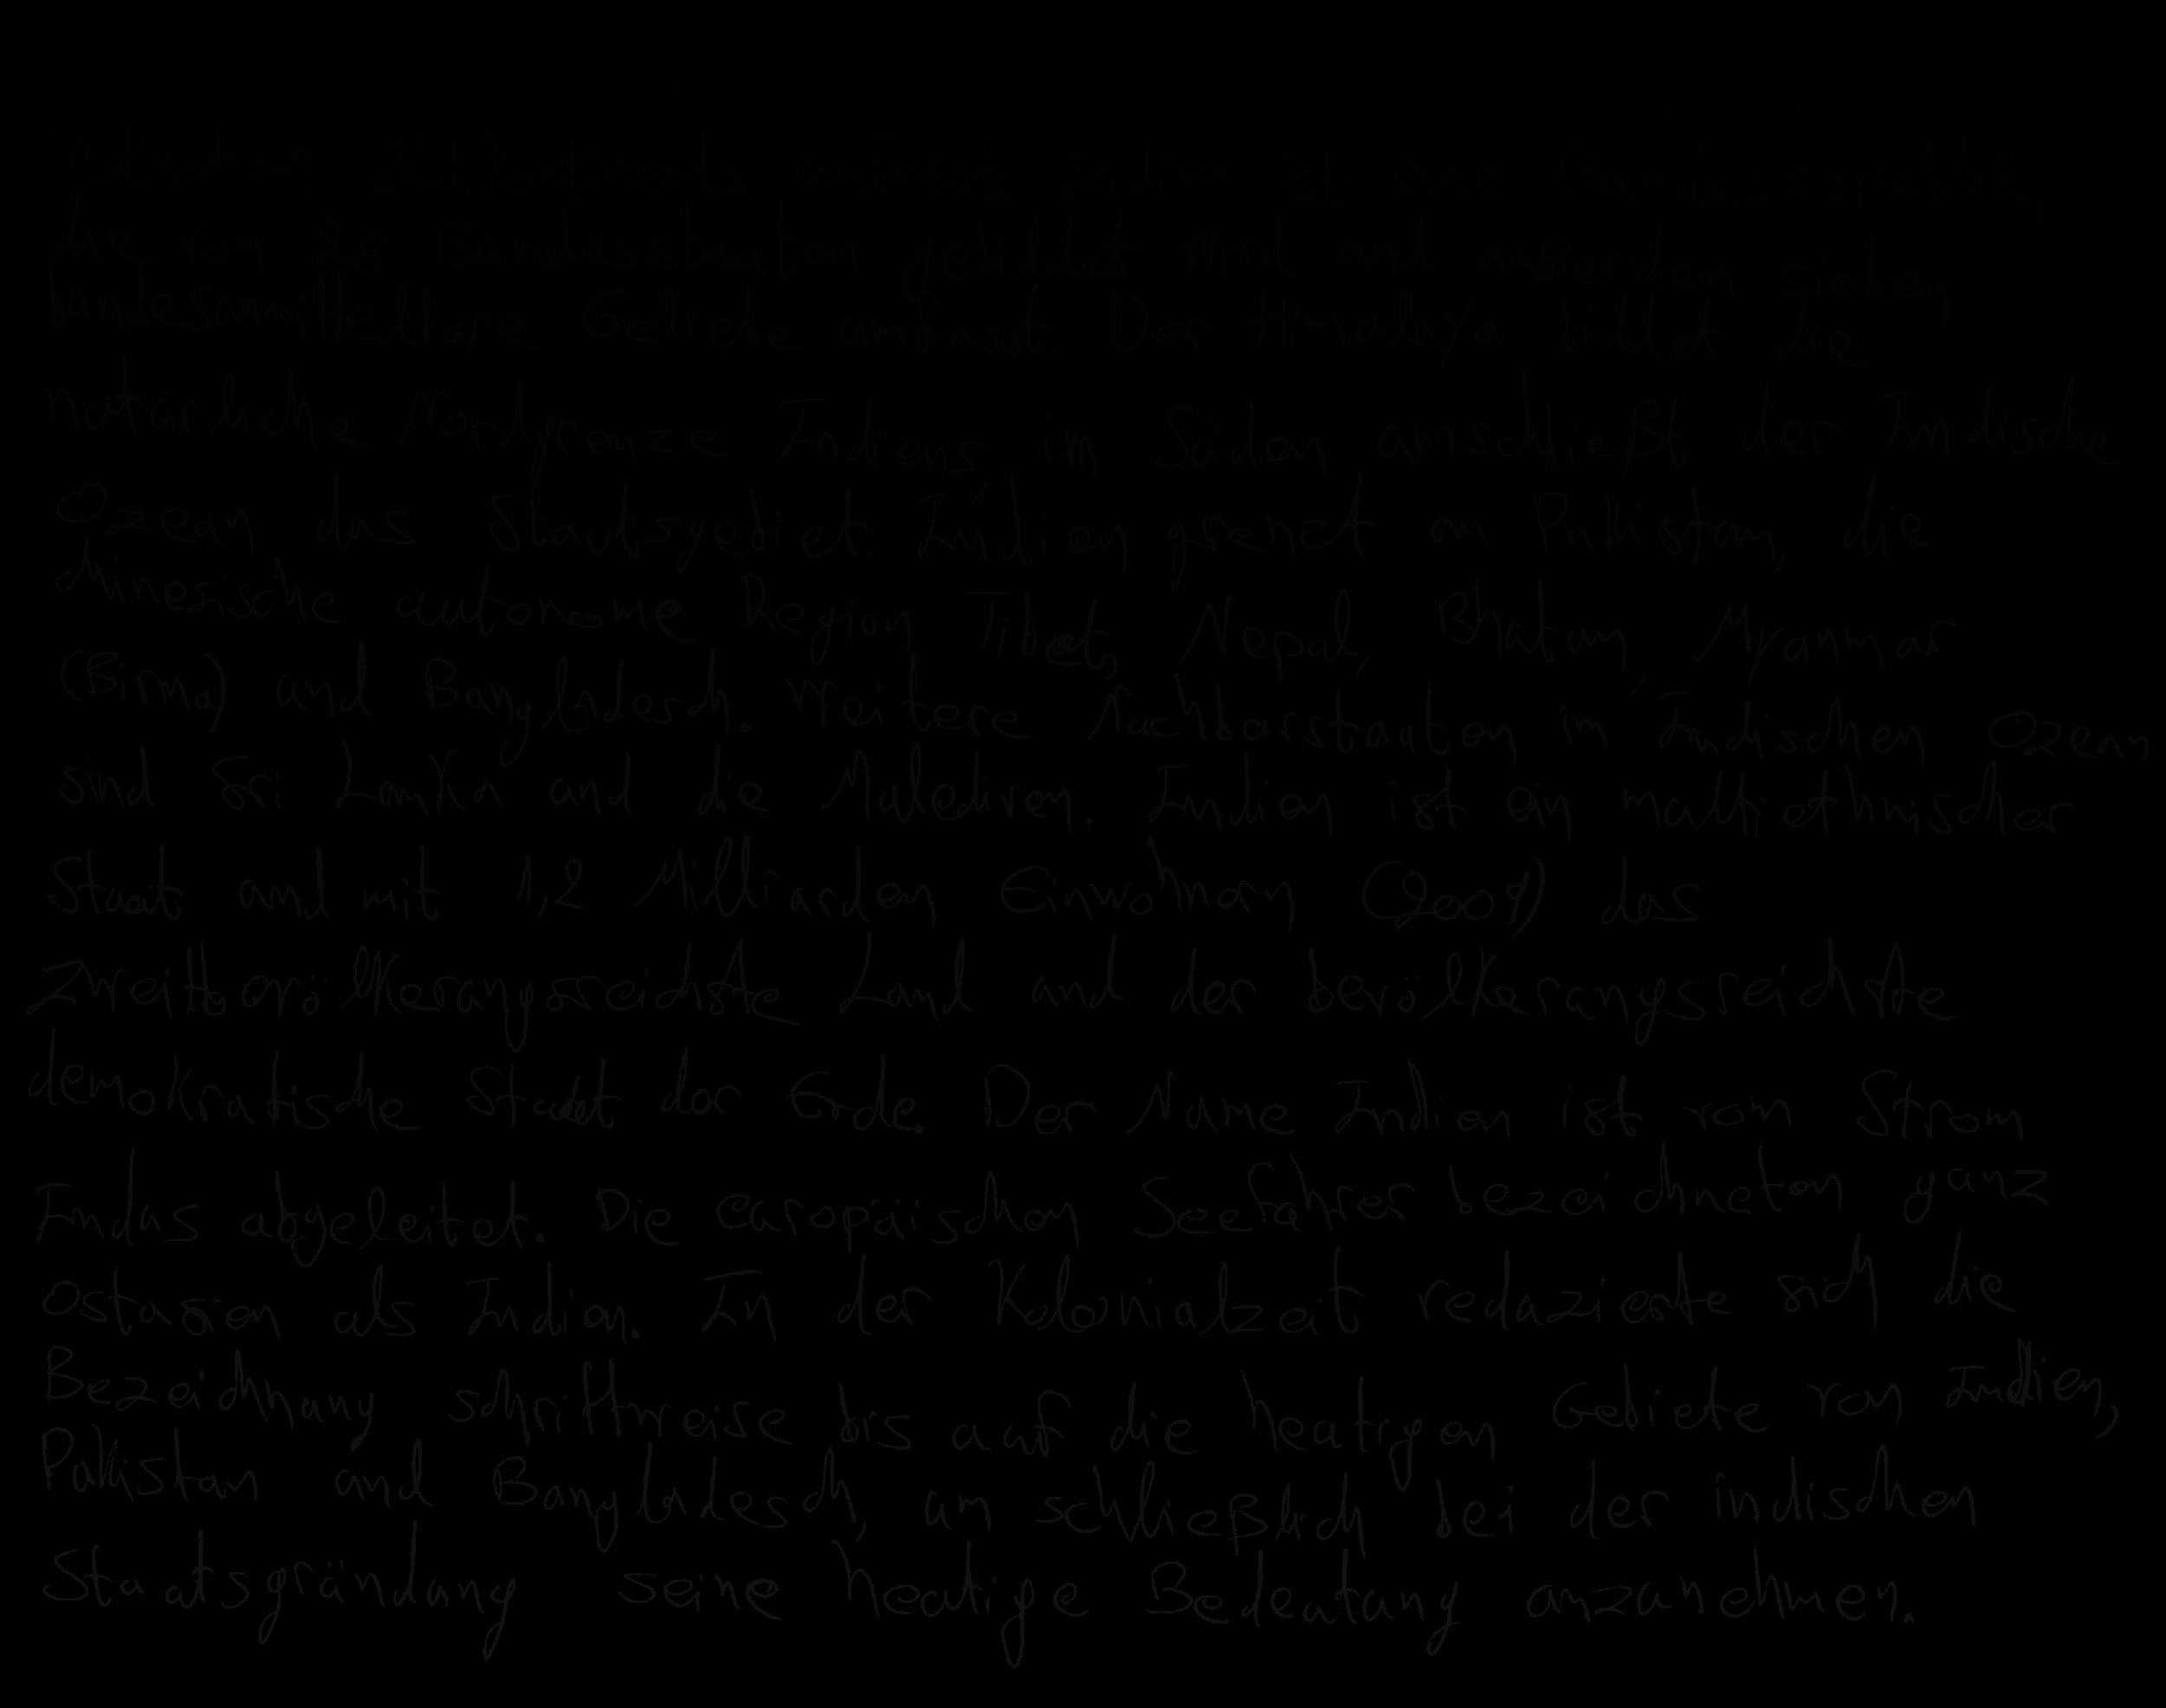 indischen Subkontinents umfasst. Indien ist eine Bundesrepublik,
die von 28 Bundesstaaten gebildet wird und außerdem sieben
bundesunmittelbare Gebiete umfasst. Der Himalaya bildet die
natürliche Nordgrenze Indiens im Süden umschließt der Indische
Ozean das Staatsgebiet. Indien grenzt an Pakistan, die
chinesische autonome Region Tibet, Nepal, Bhutan, Myanmar
(Birma) und Bangladesch. Weitere Nachbarstaaten im Indischen Ozean
sind Sri Lanka und die Malediven. Indien ist ein multiethnischer
Staat und mit 1,2 Milliarden Einwohnern (2009) das
zweitbevölkerungsreichste Land und der bevölkerungsreichste
demokratische Staat der Erde. Der Name Indien ist vom Strom
Indus abgeleitet. Die europäischen Seefahrer bezeichneten ganz
Ostasien als Indien. In der Kolonialzeit reduzierte sich die
Bezeichnung schrittweise bis auf die heutigen Gebiete von Indien,
Pakistan und Bangladesch, um schließlich bei der indischen
Staatsgründung seine heutige Bedeutung anzunehmen.